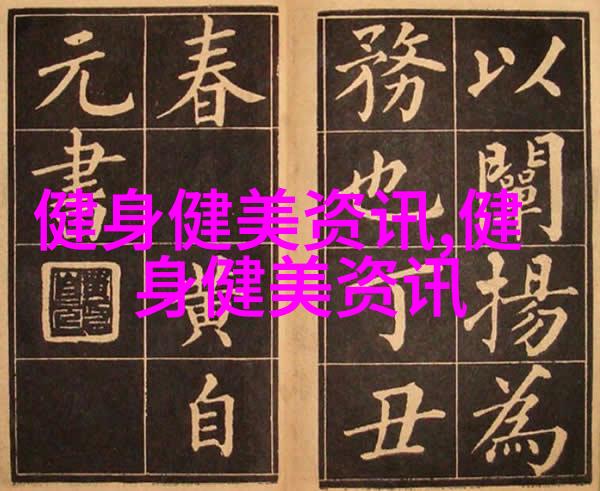 以闡揚為
務也丁丑
春黄自
元書
健身健美资讯,健
身健美资讯